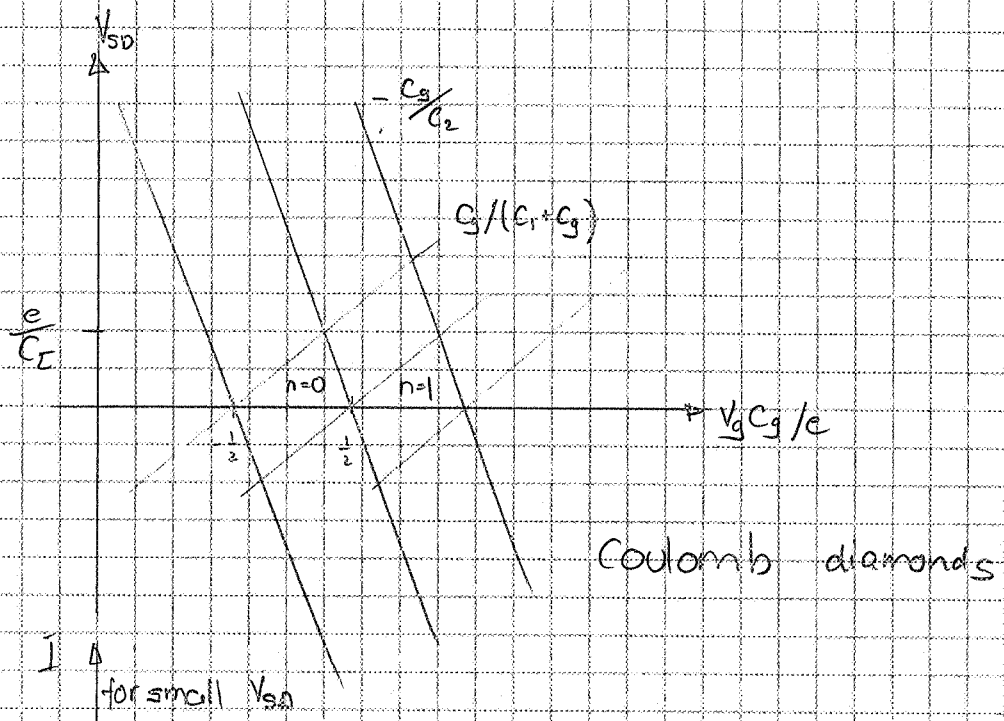 V_SD
- Cg/C₂
Cg/(C₁+Cg)
e/C_Σ
n=0
n=1
-1/2
1/2
VgCg/e
Coulomb diamonds
I
for small V_SD